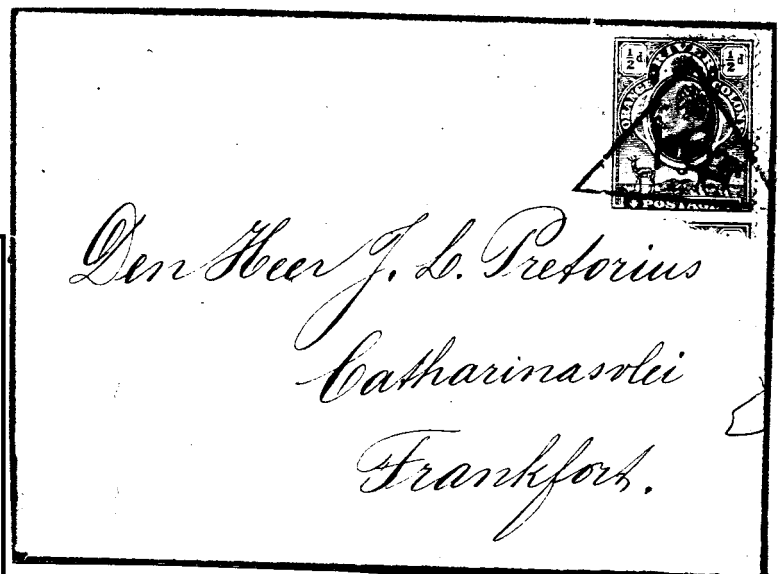 ½d ½d
ORANGE RIVER COLONY
POSTAGE
Den Heer J. L. Pretorius
Catharinasvlei
Frankfort.